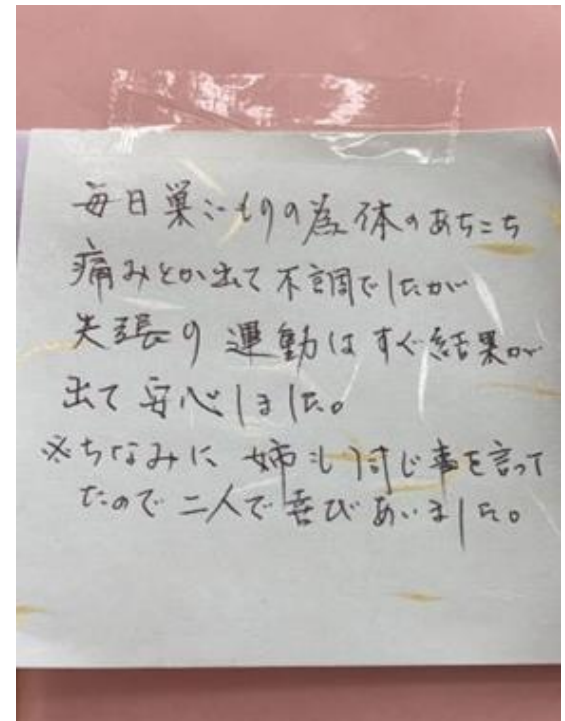 毎日巣ごもりの為、体のあちこち
痛みとか出て不調でしたが
矢張り運動はすぐ結果が
出て安心しました。
※ちなみに姉も同じ事を言って
たので二人で喜びあいました。